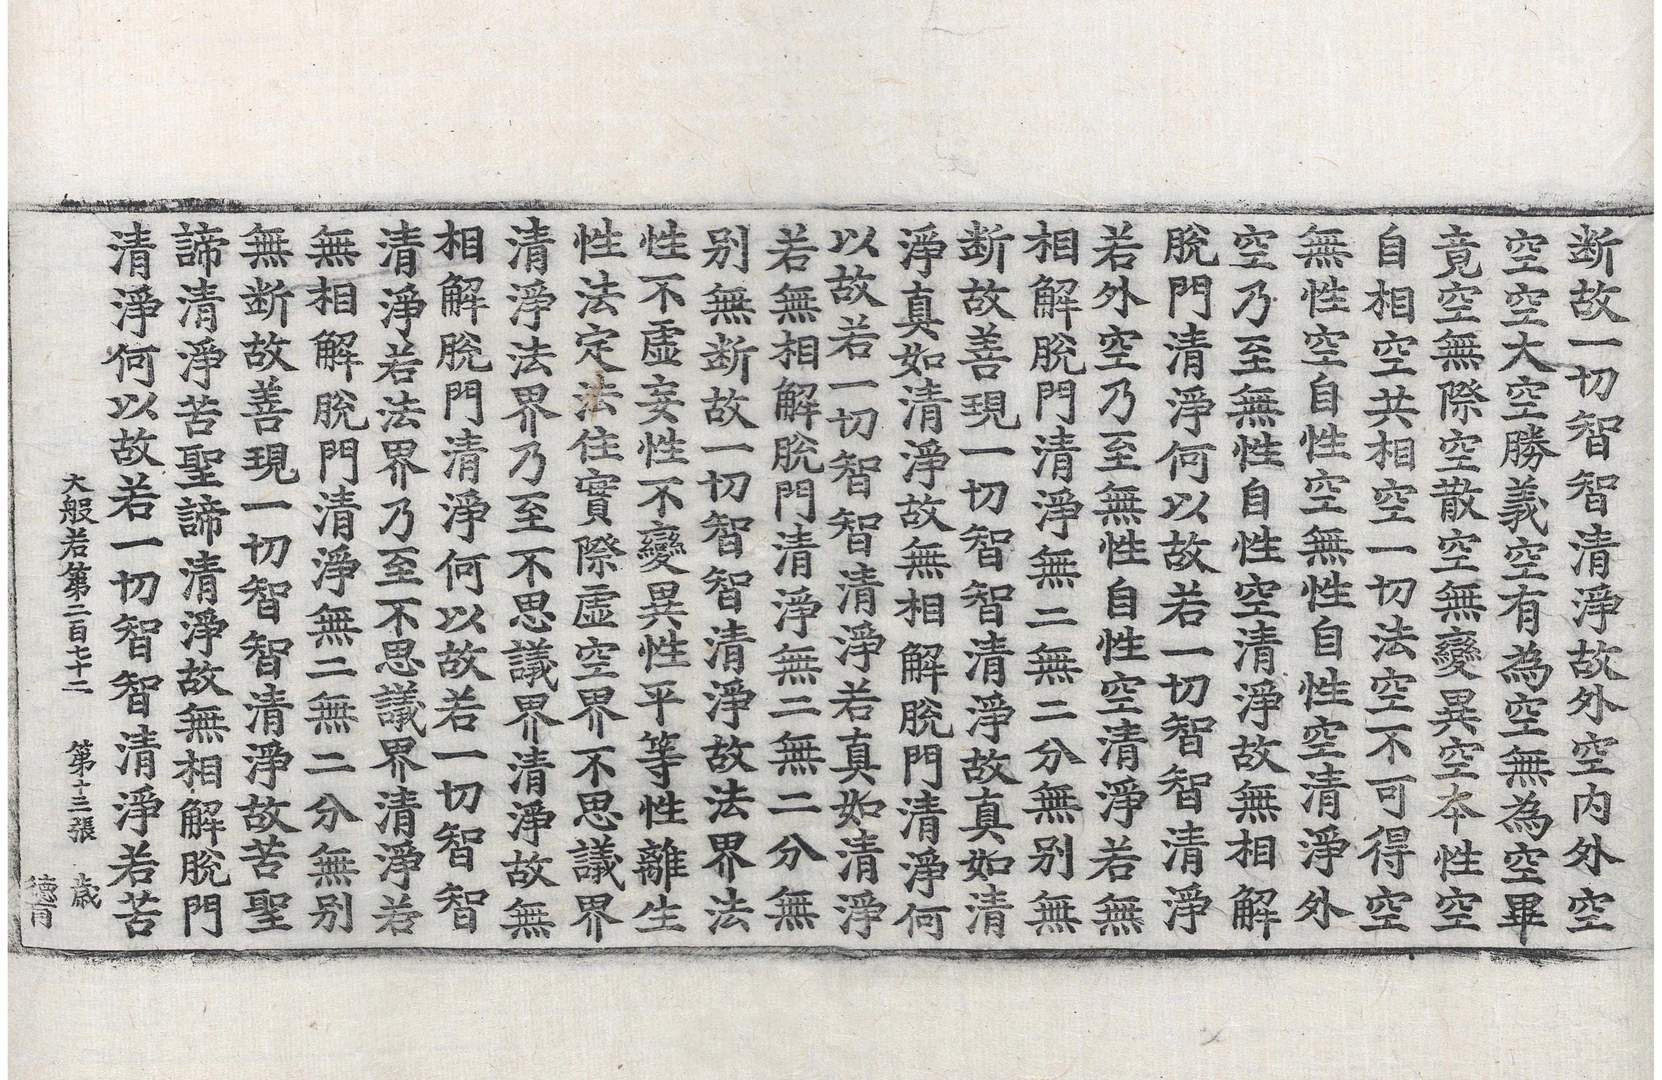 断故一切智智清淨故外空内外空
空空大空勝義空有為空無為空畢
竟空無際空散空無變異空本性空
自相空共相空一切法空不可得空
無性空自性空無性自性空清淨外
空乃至無性自性空清淨故無相解
脫門清淨何以故若一切智智清淨
若外空乃至無性自性空清淨若無
相解脫門清淨無二無二分無别無
断故善現一切智智清淨故真如清
淨真如清淨故無相解脫門清淨何
以故若一切智智清淨若真如清淨
若無相解脫門清淨無二無二分無
别無断故一切智智清淨故法界法
性不虚妄性不變異性平等性離生
性法定法住實際虚空界不思議界
清淨法界乃至不思議界清淨故無
相解脫門清淨何以故若一切智智
清淨若法界乃至不思議界清淨若
無相解脫門清淨無二無二分無别
無断故善現一切智智清淨故苦聖
諦清淨苦聖諦清淨故無相解脫門
清淨何以故若一切智智清淨若苦
大般若第二百七十二 第十三張 歳